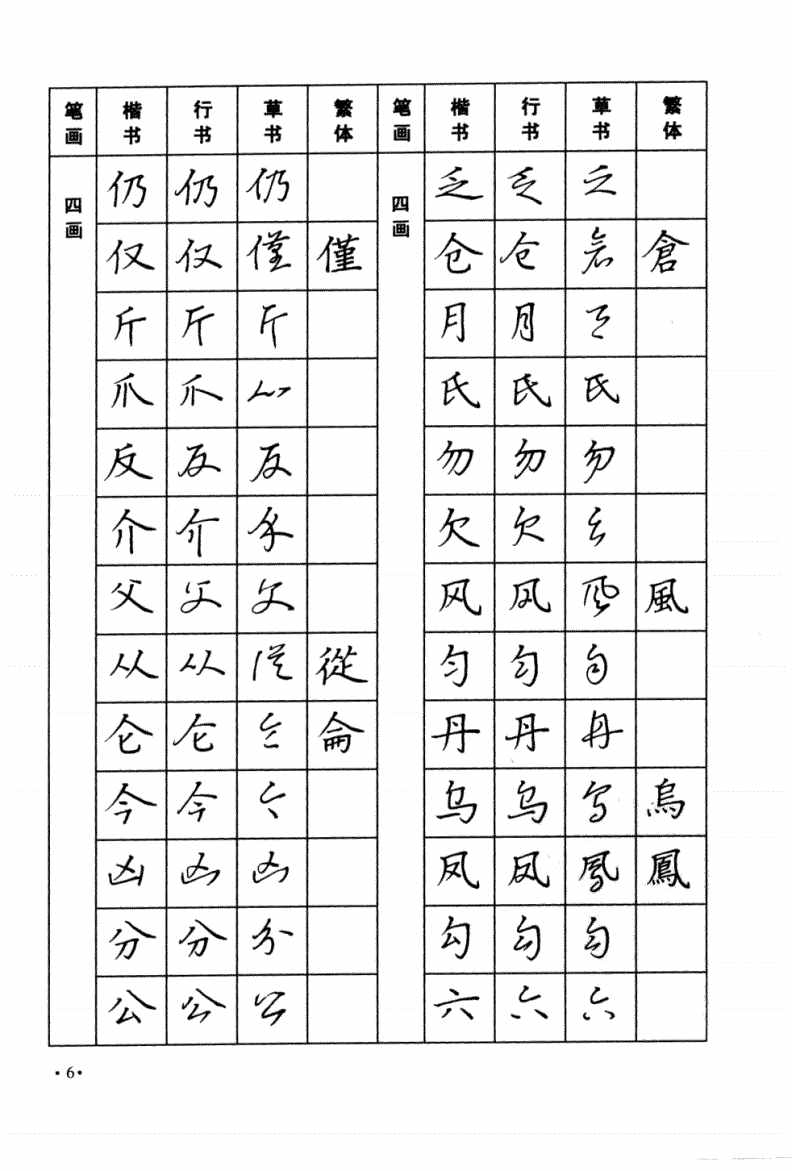 笔画 楷书 行书 草书 繁体 笔画 楷书 行书 草书 繁体
四画 仍 仍 仍 四画 乏 乏 乏
仅 仅 僅 僅 仓 仓 倉 倉
斤 斤 斤 月 月 月
爪 爪 爪 氏 氏 氏
反 反 反 勿 勿 勿
介 介 介 欠 欠 欠
父 父 父 风 风 風 風
从 从 從 從 匀 匀 匀
仑 仑 侖 侖 丹 丹 丹
今 今 今 乌 乌 烏 烏
凶 凶 凶 凤 凤 鳳 鳳
分 分 分 勾 勾 勾
公 公 公 六 六 六
·6·